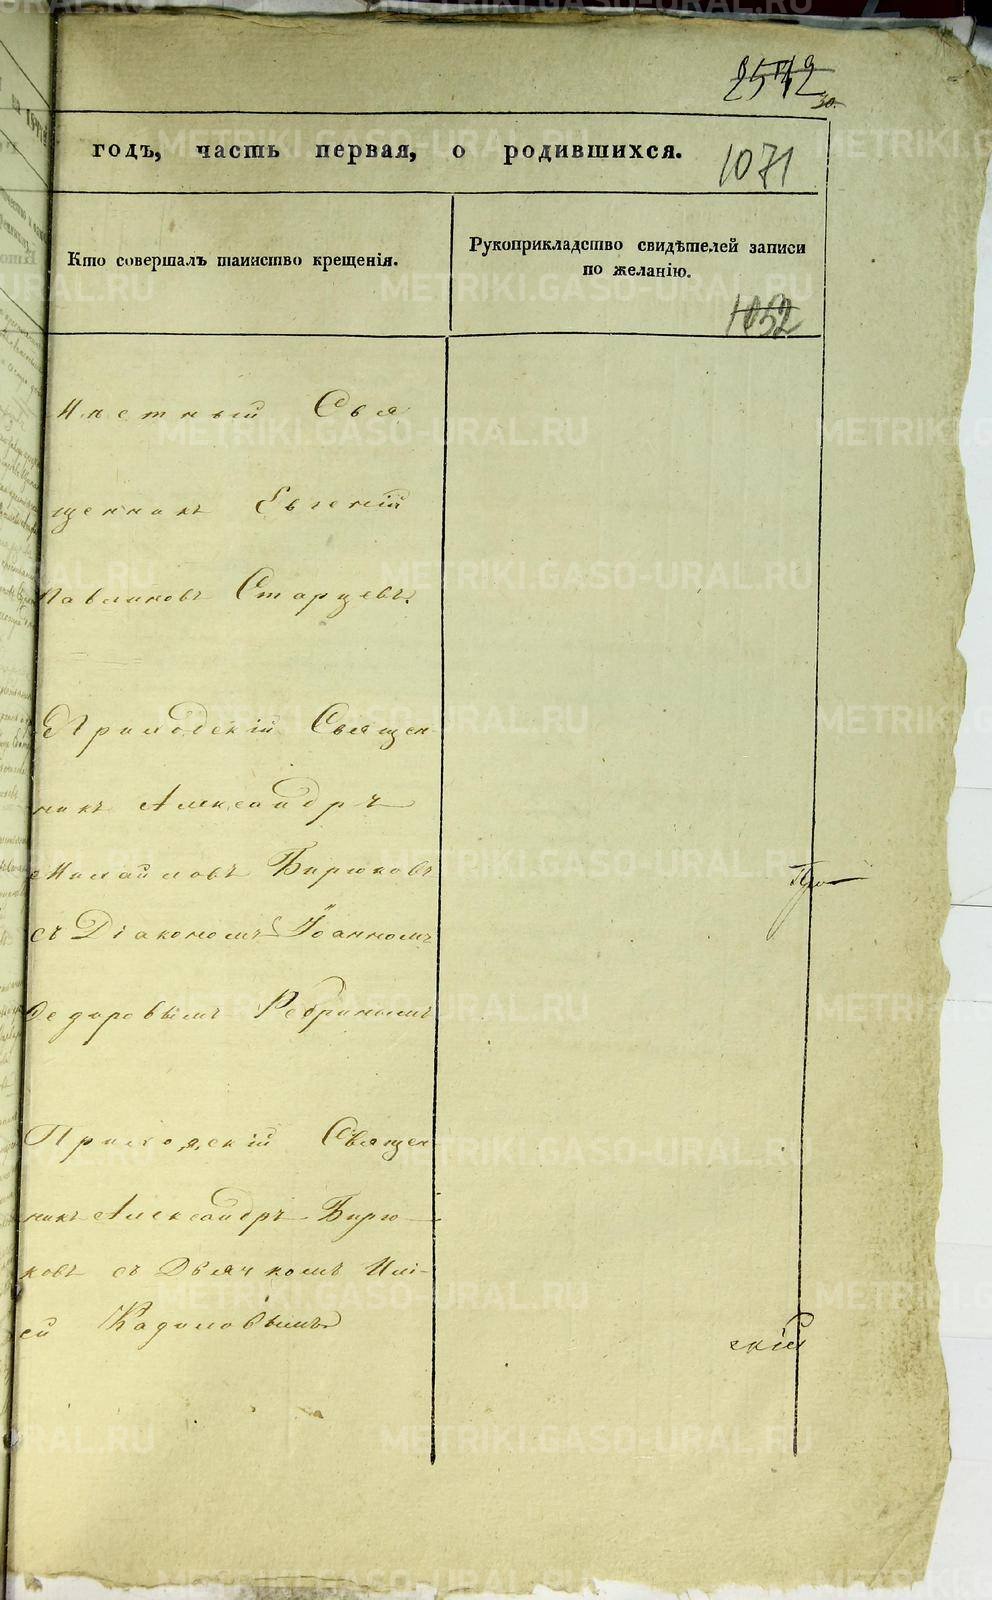 30.
годъ, часть первая, о родившихся.
1071
Кто совершалъ таинство крещенія.
Рукоприкладство свидѣтелей записи
по желанію.
1052
Мѣстный Свя
щенникъ Евгеній
Павликовъ Старцевъ.
Приходскій Священ
никъ Александръ
Михайловъ Бирюковъ
съ Діакономъ Іоанномъ
Федоровымъ Ребринымъ
Приходскій Священ
никъ Александръ Бирю
ковъ съ Дьячкомъ Илі-
ей Кадиловымъ
скій
METRIKI.GASO-URAL.RU